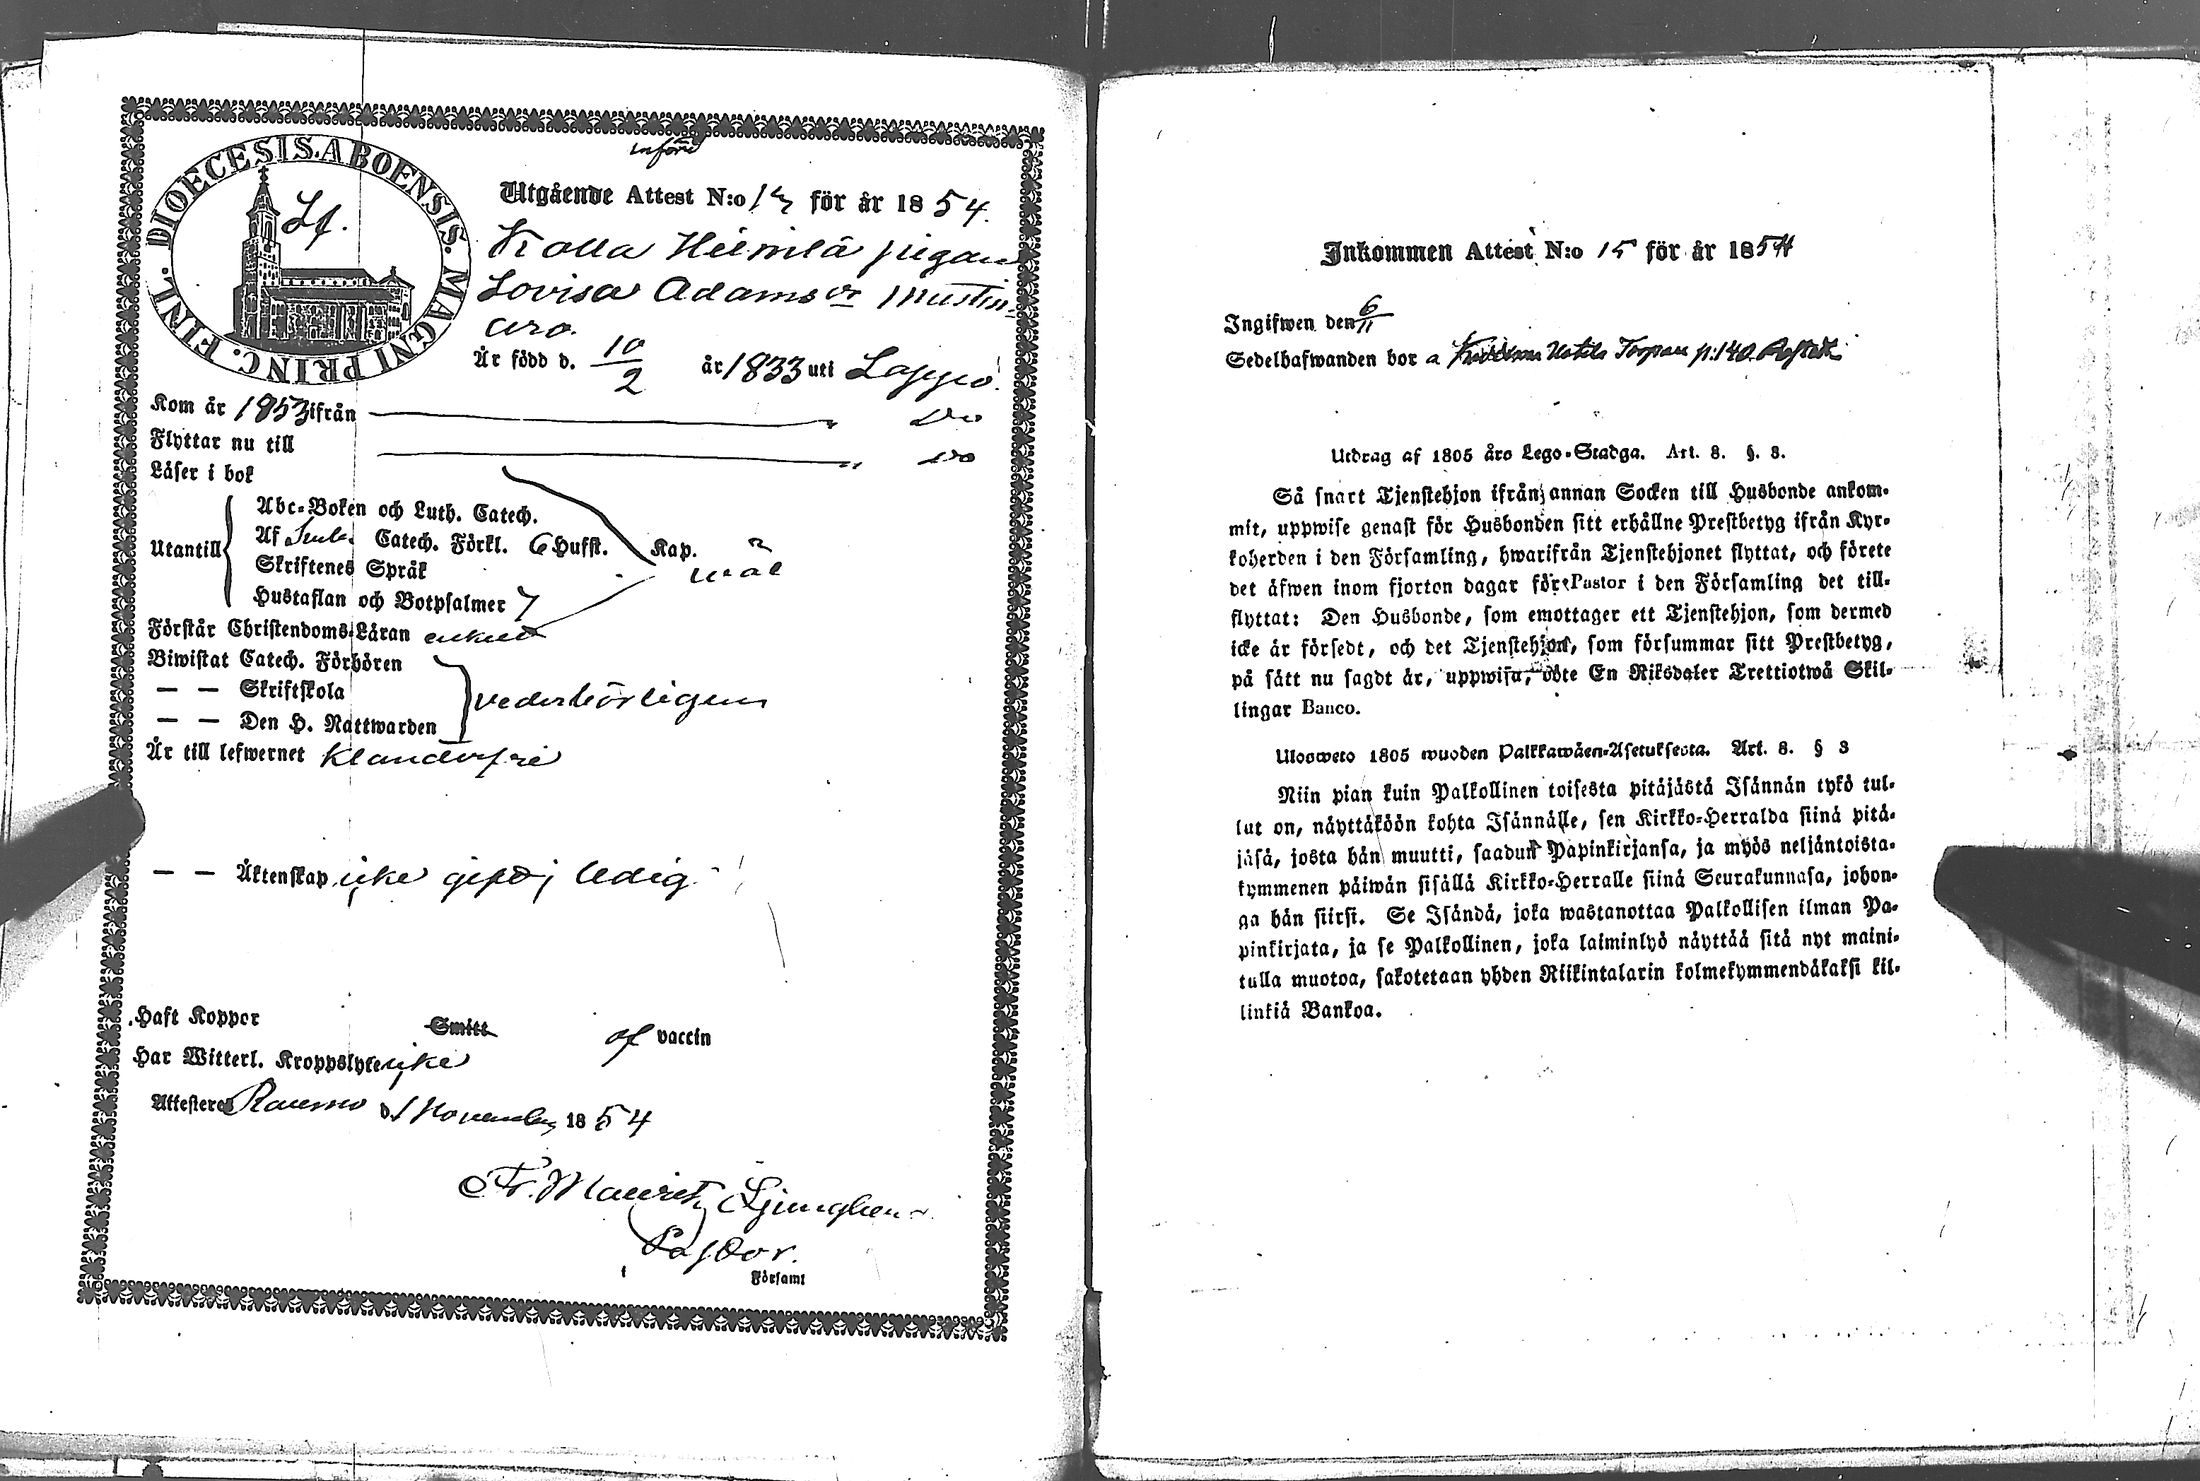 införd
DIOECESIS. ABOENSIS. MAGNI PRINC. FINL.
Utgående Attest N:o för år 1854.
Kolla Heimlä pigan
Lovisa Adams dr Mustin-
aro.
Är född d. 10/2 år 1833 uti Lappo.
Kom år 1853 ifrån Do
Flyttar nu till Do
Läser i bok
Abc-Boken och Luth. Catech.
Utantill Af Catech. Förkl. 6 Hufst. Kap.
Skriftenes Språk
Hustaflan och Botpsalmer 7
Förstår Christendoms-Läran enkelt
Biwistat Catech. Förhören
— — Skriftskola vederbörligen
— — Den H. Nattwarden
Är till lefwernet klanderfri
— — Äktenskap icke gift, ledig
Haft Koppor Smitt af vaccin
Har Witterl. Kroppslyte icke
Attesteras Raumo d. 1 November 1854
Fr. Mauritz
Pastor.
Församl
Inkommen Attest N:o 15 för år 1854
Ingifwen den 6/11
Sedelhafwanden bor a p. 140
Utdrag af 1805 års Lego-Stadga. Art. 8. §. 8.
Så snart Tjenstehjon ifrån annan Socken till Husbonde ankom-
mit, uppwise genast för Husbonden sitt erhållne Prestbetyg ifrån Kyr-
koherden i den Församling, hwarifrån Tjenstehjonet flyttat, och förete
det äfwen inom fjorton dagar för Pastor i den Församling det till-
flyttat: Den Husbonde, som emottager ett Tjenstehjon, som dermed
icke är försedt, och det Tjenstehjon, som försummar sitt Prestbetyg,
på sätt nu sagdt är, uppwisa, böte En Riksdaler Trettiotwå Skil-
lingar Banco.
Ulosweto 1805 wuoden Palkkawäen-Asetuksesta. Art. 8. § 8
Niin pian kuin Palkollinen toisesta pitäjästä Isännän tykö tul-
lut on, näyttäköön kohta Isännälle, sen Kirkko-Herralda siinä pitä-
jäsä, josta hän muutti, saadun Papinkirjansa, ja myös neljäntoista-
kymmenen päiwän sisällä Kirkko-Herralle siinä Seurakunnasa, johon-
ga hän siirsi. Se Isändä, joka wastanottaa Palkollisen ilman Pa-
pinkirjata, ja se Palkollinen, joka laiminlyö näyttää sitä nyt maini-
tulla muotoa, sakotetaan yhden Riikintalarin kolmekymmendäkaksi kil-
linkiä Bankoa.